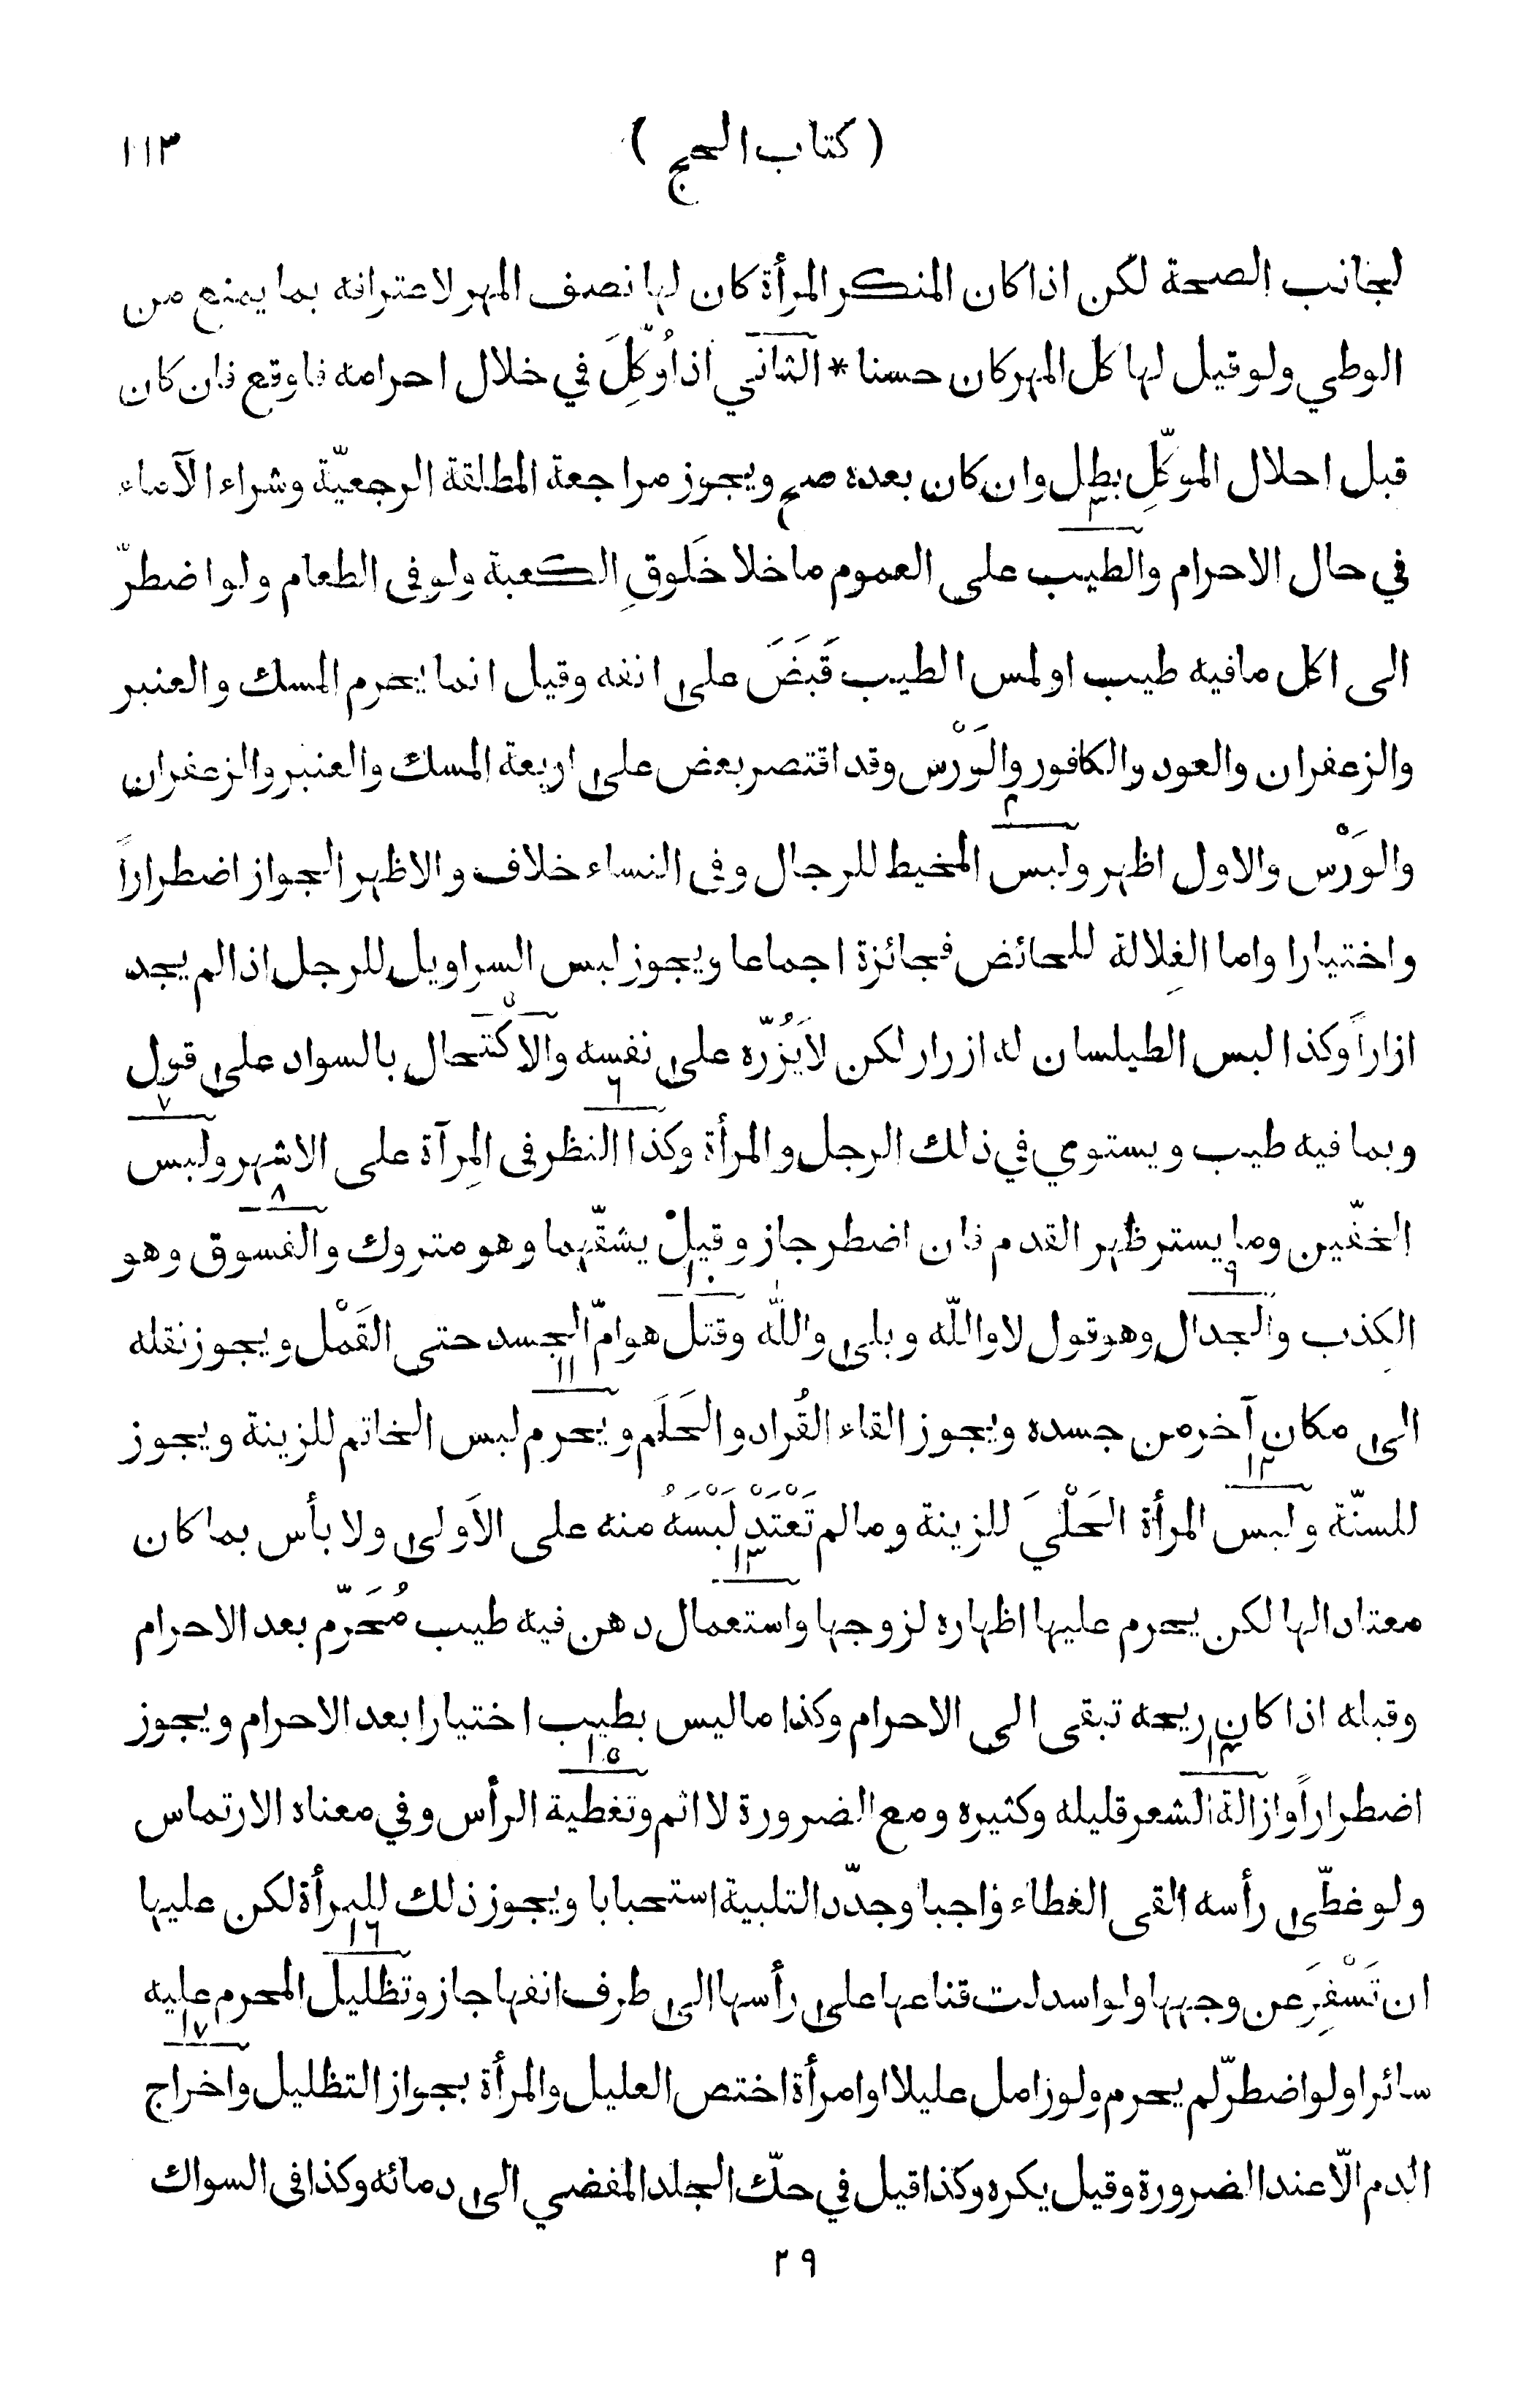 ( كتاب الحج ) ١١٣
لجانب الصحة لكن اذا كان المنكر المرأة كان لها نصف المهر لاعترافه بما يمنع من
الوطي ولو قيل لها كل المهر كان حسنا * الثاني اذا وُكِّلَ في خلال احرامه فاوقع فان كان
قبل احلال الموكِّلِ بطل وان كان بعده صح ويجوز مراجعة المطلقة الرجعيّة وشراء الآماء
٣
في حال الاحرام والطيب على العموم ما خلا خَلوقِ الكعبة ولو في الطعام ولو اضطرّ
الى اكل ما فيه طيب او لمس الطيب قَبَضَ على انفه وقيل انما يحرم المسك والعنبر
والزعفران والعود والكافور والوَرْس وقد اقتصر بعض على اربعة المسك والعنبر والزعفران
٤
والوَرْس والاول اظهر ولبس المخيط للرجال وفي النساء خلاف والاظهر الجواز اضطراراً
واختيارا واما الغِلالة للحائض فجائزة اجماعا ويجوز لبس السراويل للرجل اذا لم يجد
٥
ازاراً وكذا لبس الطيلسان له ازرار لكن لا يَزُرّه على نفسه والاكْتحال بالسواد على قول
٦ ٧
وبما فيه طيب ويستوي في ذلك الرجل والمرأة وكذا النظر في المِرآة على الاشهر ولبس
٨
الخفّين وما يستر ظهر القدم فان اضطر جاز وقيلْ يشقّهما وهو متروك والفسوق وهو
٩ ١٠
الكِذب والجدال وهو قول لا واللّه وبلى واللّه وقتل هوامّ الجسد حتى القَمْل ويجوز نقله
١١
الى مكان آخر من جسده ويجوز القاء القُراد والحَلَم ويحرم لبس الخاتم للزينة ويجوز
١٢
للسنّة ولبس المرأة الحَلْيَ للزينة وما لم تَعْتَدْ لَبْسَهُ منه على الاَولى ولا بأس بما كان
١٣
معتادا لها لكن يحرم عليها اظهاره لزوجها واستعمال دهن فيه طيب مُحَرّم بعد الاحرام
وقبله اذا كان ريحه تبقى الى الاحرام وكذا ما ليس بطيب اختيارا بعد الاحرام ويجوز
١٤ ١٥
اضطراراً وازالة الشعر قليله وكثيره ومع الضرورة لا اثم وتغطية الرأس وفي معناه الارتماس
ولو غطّى رأسه القى الغطاء واجبا وجدّد التلبية استحبابا ويجوز ذلك للمرأة لكن عليها
١٦
ان تَسْفِرَ عن وجهها ولو اسدلت قناعها على رأسها الى طرف انفها جاز وتظليل المحرم عليه
١٧
سائرا ولو اضطرّ لم يحرم ولو زامل عليلا او امرأة اختص العليل والمرأة بجواز التظليل واخراج
الدم الّا عند الضرورة وقيل يكره وكذا قيل في حكّ الجلد المفضي الى دمائه وكذا في السواك
٢٩